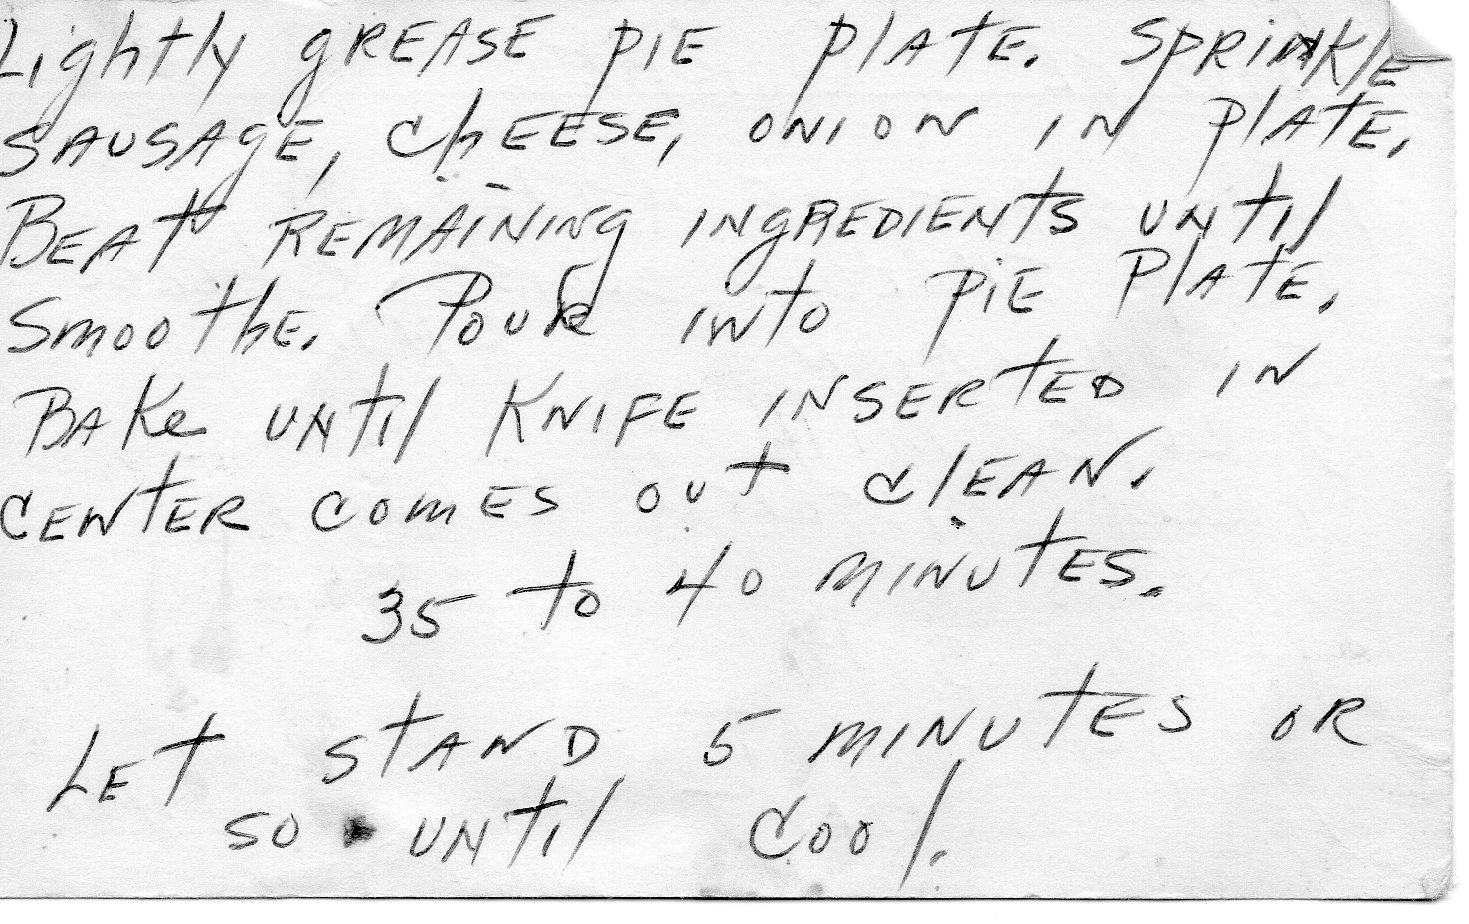 Lightly grease pie plate. Sprinkle
sausage, cheese, onion in plate.
Beat remaining ingredients until
smoothe. Pour into pie plate.
Bake until knife inserted in
center comes out clean.
35 to 40 minutes.
Let stand 5 minutes or
so until cool.